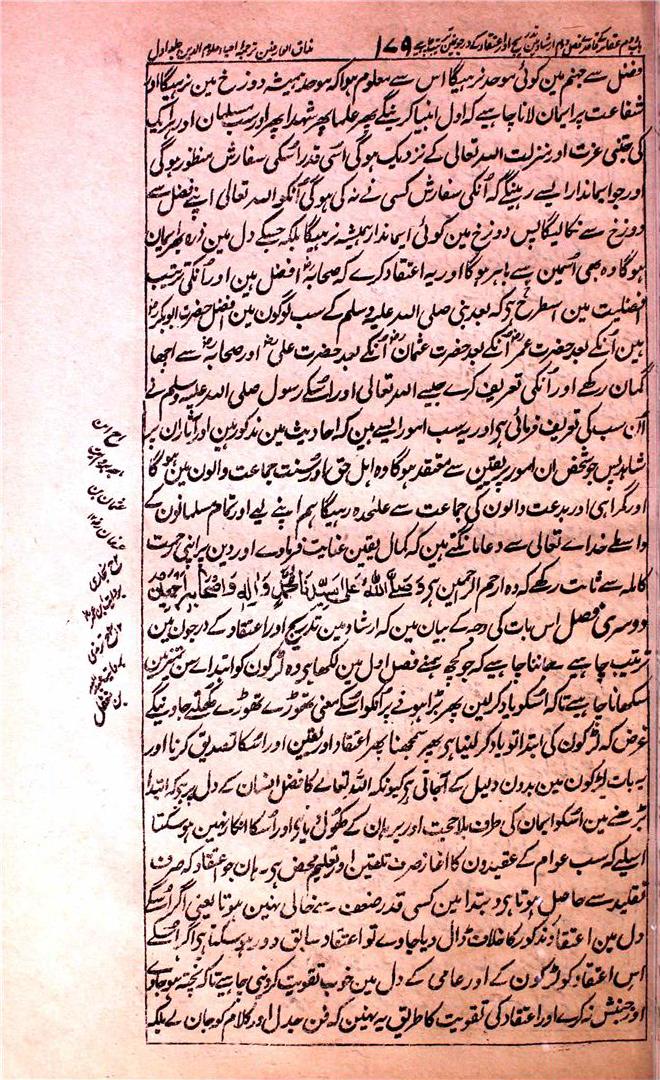 باب دوم عقائد کے قاعدے فصل دوم ارشاد میں تدریج اور اعتقاد کے درجوں میں ترتیب چاہیے ۱۷۹ مذاق العارفین ترجمہ احیاء علوم الدین جلد اول
فضل سے جہنم مین کوئی موحد نرہیگا اس سے معلوم ہوا کہ موحد ہمیشہ دوزخ مین نرہیگا اور
شفاعت پر ایمان لانا چاہیے کہ اول انبیا کرینگے پھر علما پھر شہدا پھر اور سب مسلمان اور ہر ایک
کی جتنی عزت اور منزلت اللہ تعالی کے نزدیک ہوگی اسی قدر اسکی سفارش منظور ہوگی
اور جو ایماندار ایسے رہینگے کہ اُنکی سفارش کسی نے نہ کی ہوگی اُنکو اللہ تعالی اپنے فضل سے
دوزخ سے نکالیگا پس دوزخ مین کوئی ایماندار ہمیشہ نرہیگا بلکہ جسکے دل مین ذرہ بھر ایمان
ہوگا وہ بھی اُسمین سے باہر ہوگا اور یہ اعتقاد کرے کہ صحابہ افضل ہین اور اُنکی ترتیب
افضلیت مین اسطرح ہی کہ بعد نبی صلی اللہ علیہ وسلم کے سب لوگون مین افضل حضرت ابوبکر
ہین اُنکے بعد حضرت عمر اُنکے بعد حضرت عثمان اُنکے بعد حضرت علی اور صحابہ سے اچھا
گمان رکھے اور اُنکی تعریف کرے جیسے اللہ تعالی اور اسکے رسول صلی اللہ علیہ وسلم نے
اُن سب کی تعریف فرمائی ہی اور یہ سب امور ایسے ہین کہ احادیث مین مذکور ہین اور آثار ان پر
شاہد پس جو شخص ان امور پر یقین سے معتقد ہوگا وہ اہل حق اور سنت جماعت والون مین ہوگا
اور گمراہی اور بدعت والون کی جماعت سے علٰحدہ رہیگا ہم اپنے لیے اور تمام مسلمانون کے
واسطے خداے تعالی سے دعا مانگتے ہین کہ کمال یقین عنایت فرماوے اور دین پر اپنی رحمت
کاملہ سے ثابت رکھے کہ وہ ارحم الراحمین ہی وَصَلَّی اللّٰہُ عَلٰی سَیِّدِنَا مُحَمَّدٍ وَّاٰلِہٖ وَاَصْحَابِہٖ اَجْمَعِیْنَ
دوسری فصل اس بات کی وجہ کے بیان مین کہ ارشاد مین تدریج اور اعتقاد کے درجون مین
ترتیب چاہیے جاننا چاہیے کہ جو کچھ ہمنے فصل اول مین لکھا ہی وہ لڑکون کو ابتداے سن تمیز مین
سکھانا چاہیے تاکہ اُسکو یاد کرلین پھر بڑا ہونے پر اُنکو اسکے معنی تھوڑے تھوڑے کھلتے جاوینگے
غرض کہ لڑکون کی ابتدا تو یاد کرلینا ہی پھر سمجھنا پھر اعتقاد اور یقین اور اسکا تصدیق کرنا اور
یہ بات لڑکون مین بدون دلیل کے آجاتی ہی کیونکہ اللہ تعالے کا فضل انسان کے دل پر ہی کہ ابتدا
بڑھنے مین اسکو ایمان کی طرف بلا حجت اور برہان کے کھول دیا ہی اور اسکا انکار نہین ہوسکتا
اسلیے کہ سب عوام کے عقیدون کا آغاز صرف تلقین اور تعلیم محض ہی۔ ہان جو اعتقاد کہ صرف
تقلید سے حاصل ہوتا ہی وہ ابتدا مین کسی قدر ضعف سے خالی نہین ہوتا یعنی اگر اسکے
دل مین اعتقاد مذکور کا خلاف ڈال دیا جاوے تو اعتقاد سابق دور ہوسکتا ہی اگر اسکے
اس اعتقاد کو لڑکون کے اور عامی کے دل مین خوب تقویت کردینی چاہیے تاکہ پختہ ہوجاوے
اور جنبش نہ کرے اور اعتقاد کی تقویت کا طریق یہ نہین کہ فن جدل اور کلام کو جان لے بلکہ